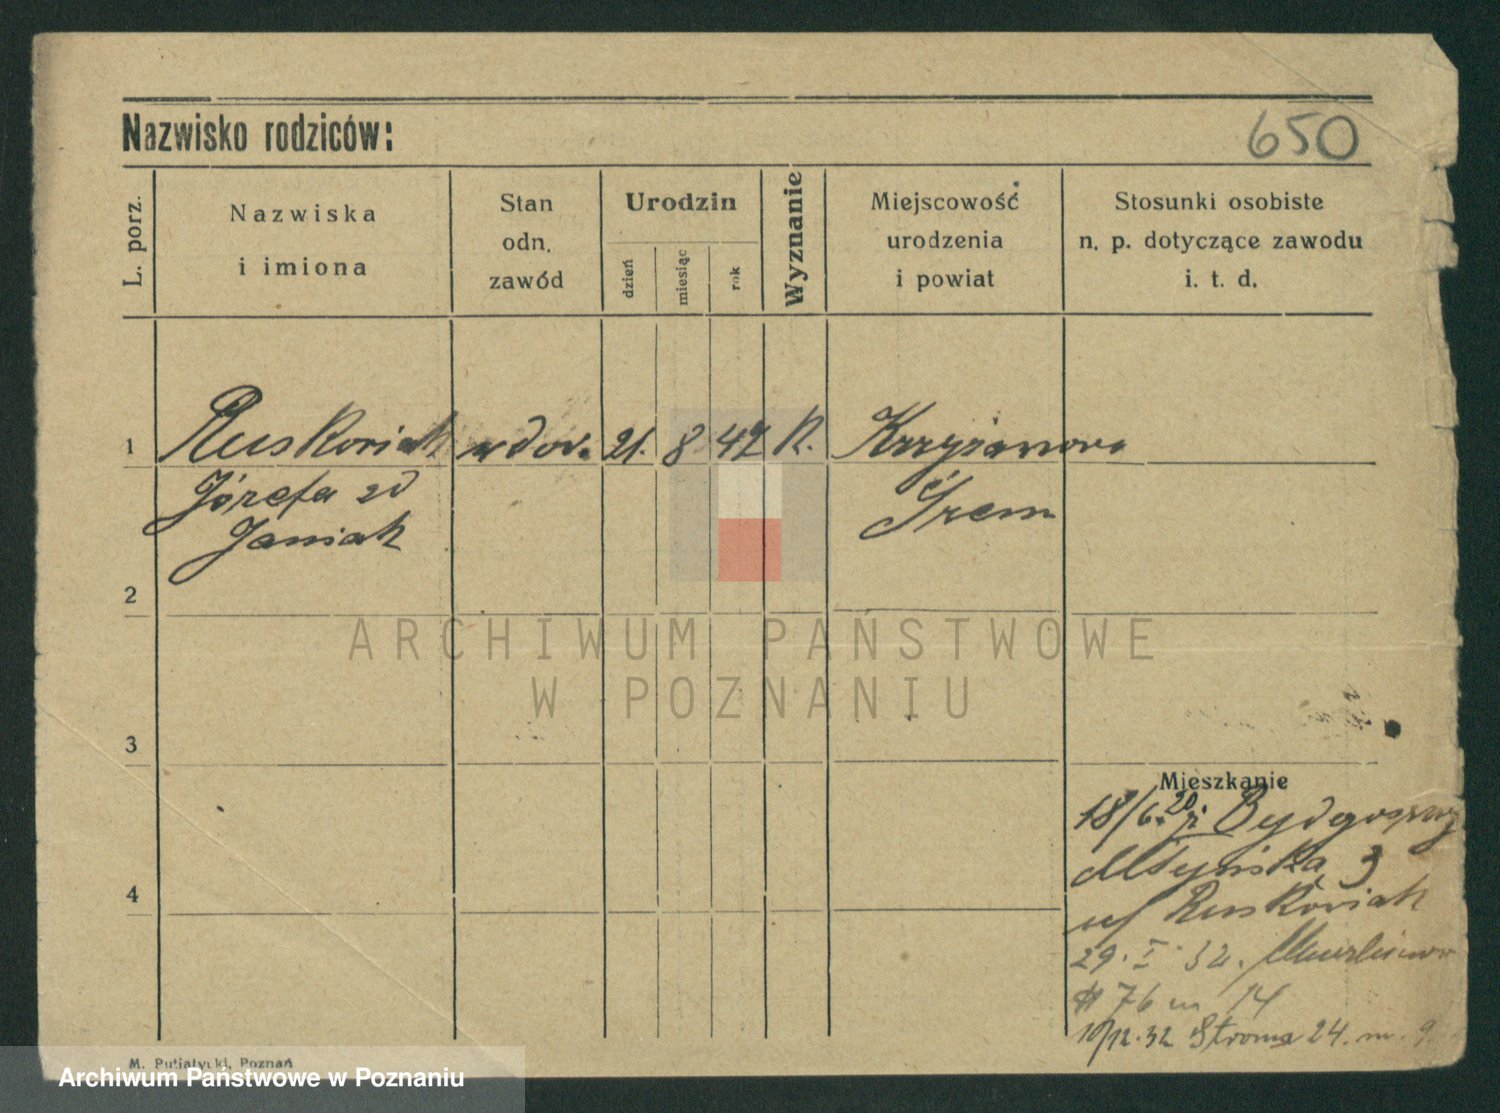 650
Nazwisko rodziców:
L. porz.
Nazwiska
i imiona
Stan
odn.
zawód
Urodzin
dzień
miesiąc
rok
Wyznanie
Miejscowość
urodzenia
i powiat
Stosunki osobiste
n. p. dotyczące zawodu
i. t. d.
1 Ruskoriak wdow. 21. 8 42 R. Krzyżanowo
Józefa zd Śrem
Janiak
2
ARCHIWUM PAŃSTWOWE
W POZNANIU
3
Mieszkanie
18/6. 20. z Bydgoszczy
Młyńska 3
4
Ruskoriak
29. I. 32.
76 m 14
10/12.32 Stroma 24. m. 9
M. Putiatycki, Poznań
Archiwum Państwowe w Poznaniu